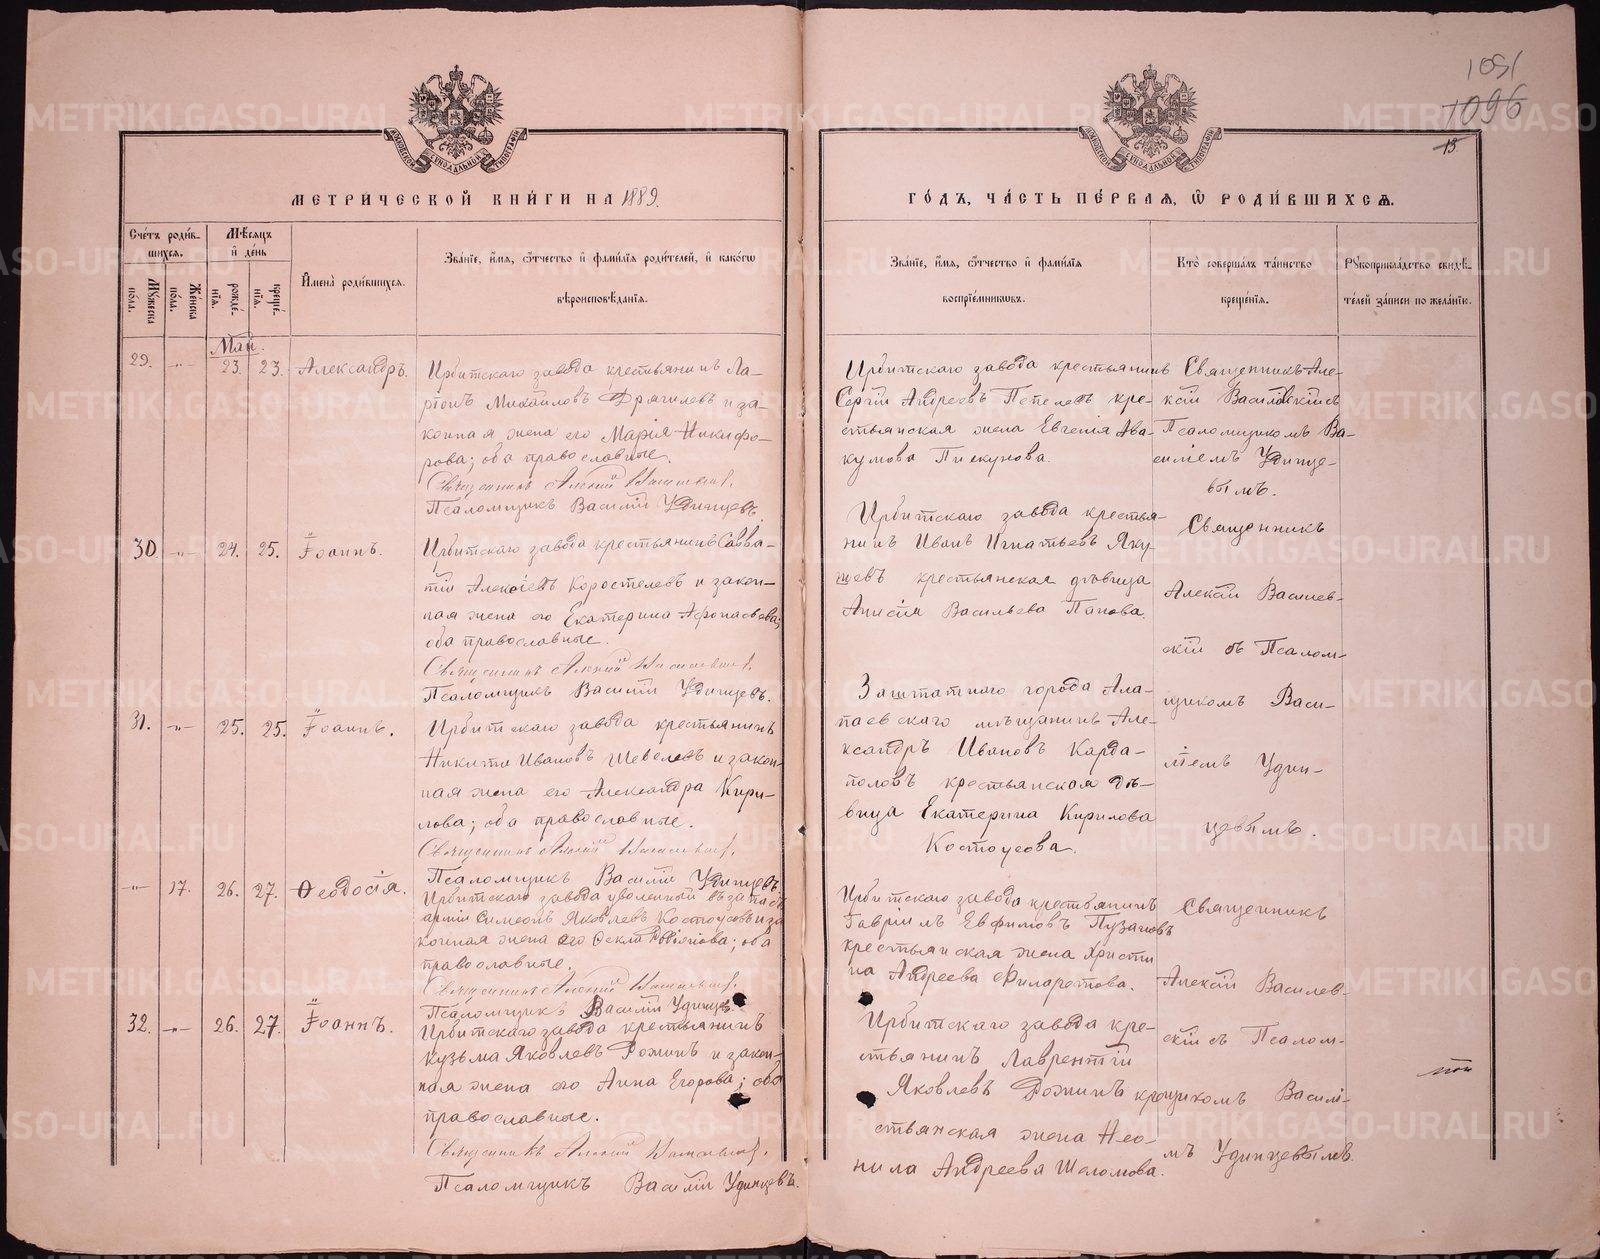 1051
1096
13
МЕТРИЧЕСКОЙ КНИГИ НА 1889.
ГОДЪ, ЧАСТЬ ПЕРВАЯ, Ѡ РОДИВШИХСЯ.
Счетъ родив-
шихся.
Мужеска пола.
Женска пола.
Мѣсяцъ и день
рожде-
нїя.
креще-
нїя.
Имена родившихся.
Званїе, имя, отчество и фамилїя родителей, и какогω
вѣроисповѣданїя.
Званїе, имя, отчество и фамилїя
воспрїемниковъ.
Кто совершалъ таинство
крещенїя.
Рукоприкладство свидѣ-
телей записи по желанїю.
Май.
29. -"- 23. 23. Александръ.
Ирбитскаго завода крестьянинъ Ла-
рїонъ Михаиловъ Фрягилевъ и за-
конная жена его Марія Никифо-
рова; оба православные.
Священникъ Алексїй
Псаломщикъ Василїй Удинцевъ.
Ирбитскаго завода крестьянинъ
Сергїй Андреевъ Пепелевъ кре-
стьянская жена Евгенія Ава-
кумова Пискунова.
Священникъ Але-
ксїй Василевскїй съ
Псаломщикомъ Ва-
силїемъ Удинце-
вымъ.
30 -"- 24. 25. Іоаннъ.
Ирбитскаго завода крестьянинъ Савва-
тїй Алексїевъ Коростелевъ и закон-
ная жена его Екатерина Афонасьева;
оба православные.
Священникъ Алексїй
Псаломщикъ Василїй Удинцевъ.
Ирбитскаго завода крестья-
нинъ Иванъ Игнатьевъ Яку-
шевъ крестьянская дѣвица
Анисїя Васильева Панова.
Священникъ
Алексїй Василев-
скїй съ Псалом-
щикомъ Васи-
лїемъ Удин-
цевымъ.
31. -"- 25. 25. Іоаннъ.
Ирбитскаго завода крестьянинъ
Никита Ивановъ Шевелевъ и закон-
ная жена его Александра Кири-
лова; оба православные.
Священникъ Алексїй
Псаломщикъ Василїй Удинцевъ.
Заштатнаго города Ала-
паевскаго мѣщанинъ Але-
ксандръ Ивановъ Карда-
половъ крестьянская дѣ-
вица Екатерина Кирилова
Костоусова.
-"- 17. 26. 27. Ѳеодосїя.
Ирбитскаго завода уволенный въ запасъ
армїи Симеонъ Яковлевъ Костоусовъ и за-
конная жена его Ѳекла; оба
православные.
Священникъ Алексїй
Псаломщикъ Василїй Удинцевъ.
Ирбитскаго завода крестьянинъ
Гаврїилъ Евфимовъ Пузановъ
крестьянская жена Христи
на Андреева Филаретова.
Священникъ
Алексїй Василев-
скїй съ Псалом-
щикомъ Василї-
мъ Удинцевымъ.
32. -"- 26. 27. Іоаннъ.
Ирбитскаго завода крестьянинъ
Кузьма Яковлевъ Рожинъ и закон-
ная жена его Анна Егорова; оба
православные.
Священникъ Алексїй
Псаломщикъ Василїй Удинцевъ.
Ирбитскаго завода кре-
стьянинъ Лаврентїй
Яковлевъ Рожинъ кре
стьянская жена Нео-
нила Андреева Шеломова.
METRIKI.GASO-URAL.RU